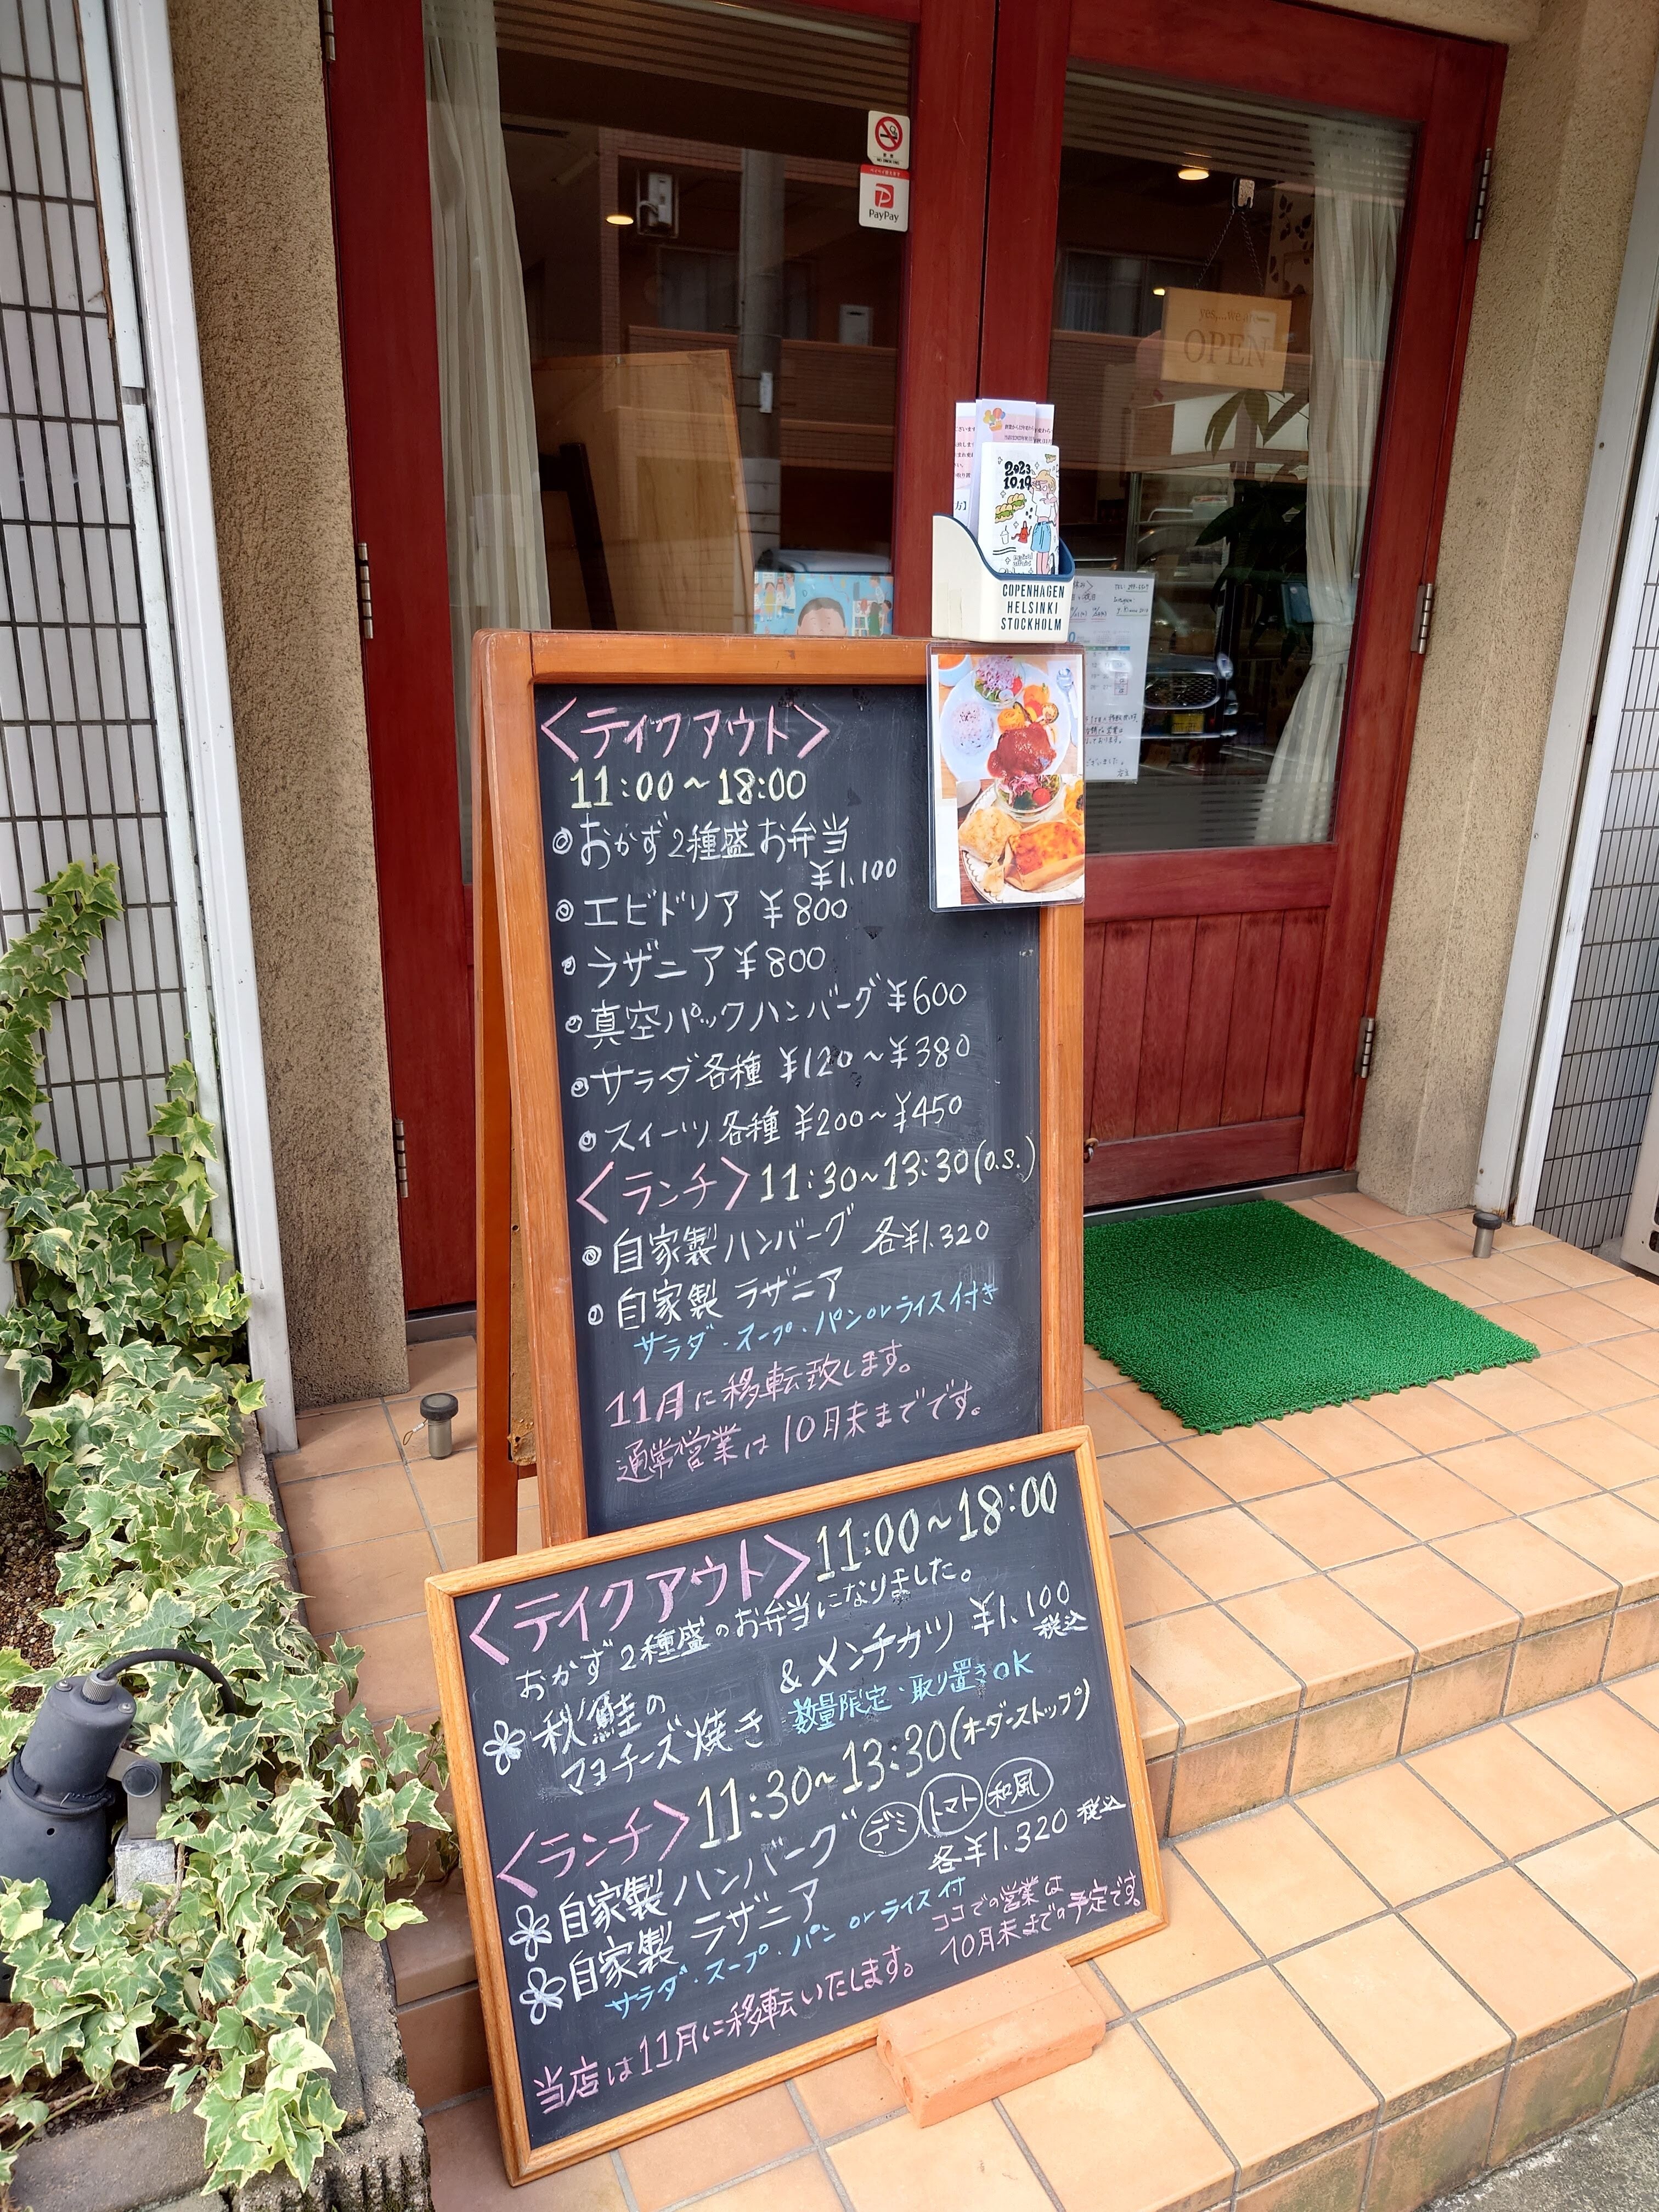 PayPay
yes,...we are
OPEN
2023
10.19
COPENHAGEN
HELSINKI
STOCKHOLM
<テイクアウト>
11:00~18:00
◎おかず2種盛お弁当
¥1,100
◎エビドリア ¥800
◎ラザニア ¥800
◎真空パックハンバーグ¥600
◎サラダ各種 ¥120~¥380
◎スイーツ各種 ¥200~¥450
<ランチ>11:30~13:30(o.s.)
◎自家製ハンバーグ 各¥1,320
◎自家製 ラザニア
サラダ・スープ・パンorライス付き
11月に移転致します。
通常営業は10月末までです。
<テイクアウト>11:00~18:00
おかず2種盛のお弁当になりました。
秋鮭の
マヨチーズ焼き
&メンチカツ ¥1,100
税込
数量限定・取り置きOK
<ランチ>11:30~13:30(オーダーストップ)
自家製ハンバーグ デミ トマト 和風
自家製 ラザニア 各¥1,320 税込
サラダ・スープ・パン orライス付
ココでの営業は
10月末までの予定です。
当店は11月に移転いたします。